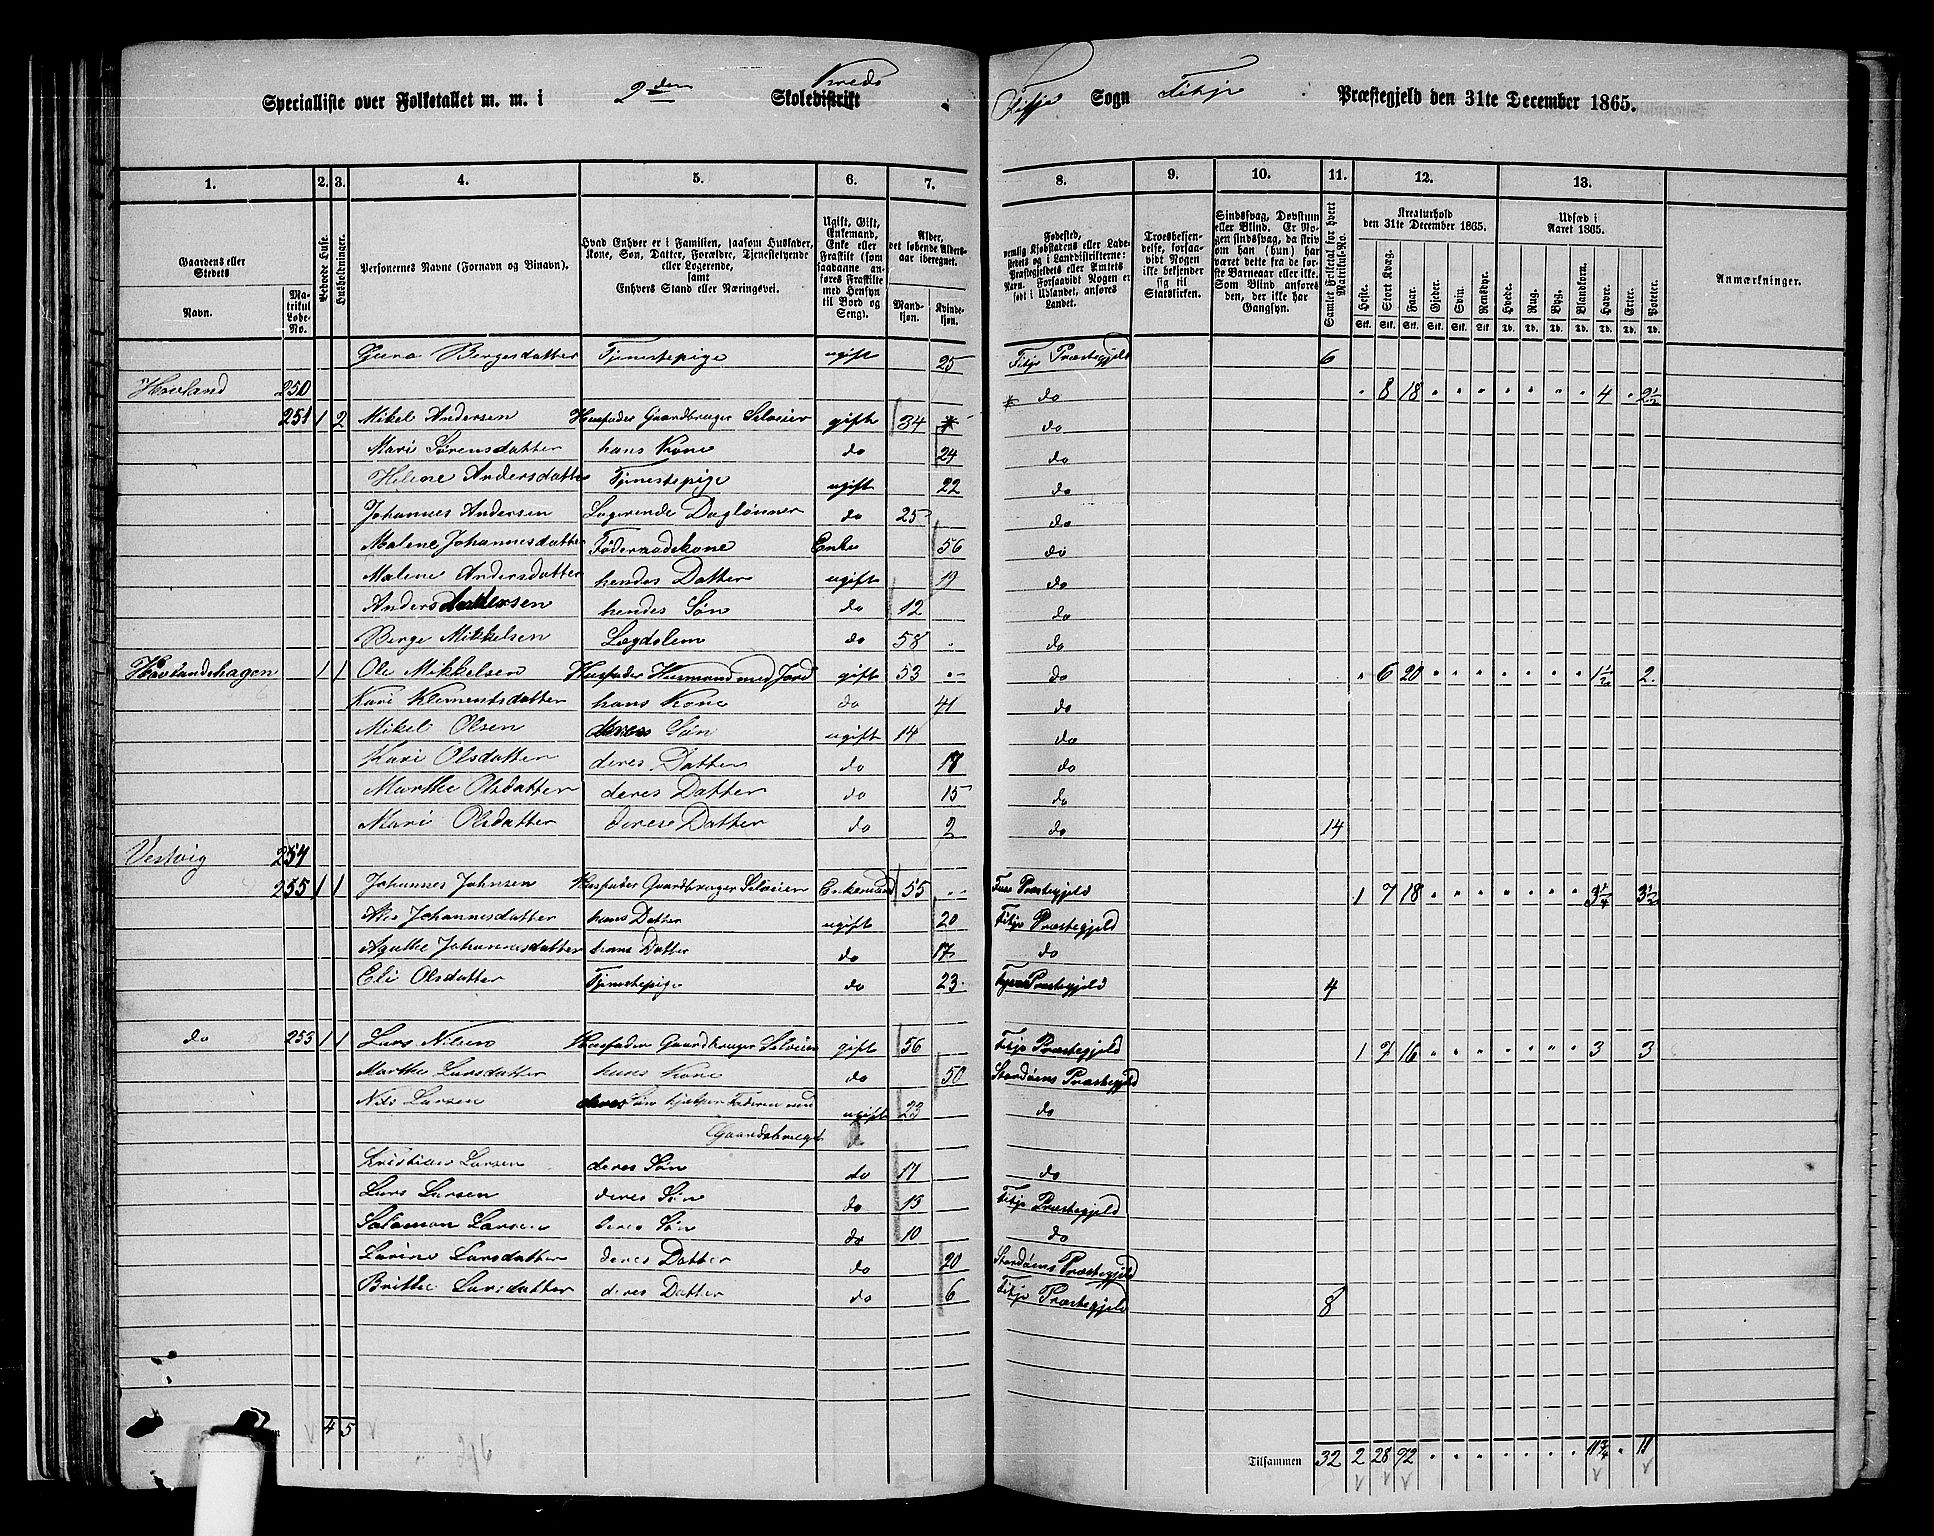 Specialliste over Folketallet m. m. i 2den Kreds Skoledistrikt Fitje Sogn Fitje Præstegjeld den 31te December 1865.
1. 2. 3. 4. 5. 6. 7. 8. 9. 10. 11. 12. 13.
Gaardens eller Stedets
Navn.
Matrikul Løbe-No.
Beboede Huse.
Husholdninger.
Personernes Navne (Fornavn og Binavn).
Hvad Enhver er i Familien, saasom Husfader, Kone, Søn, Datter, Forældre, Tjenestetyende eller Logerende, samt Enhvers Stand eller Næringsvei.
Ugift, Gift, Enkemand, Enke eller Fraskilt (som saadanne anføres Fraskilte med Hensyn til Bord og Seng).
Alder, det løbende Alders-aar iberegnet.
Mandkjøn. Kvindekjøn.
Fødested,
Samlet Folketal for hvert Matrikuls-No.
Kreaturhold den 31te December 1865.
Heste. Stort Kvæg. Faar. Gjeder. Svin. Rensdyr.
Udsæd i Aaret 1865.
Hvede. Rug. Byg. Blandkorn. Havre. Erter. Poteter.
Anmærkninger.
Bergesdatter Tjenestepige ugift 25 Fitje Præstegjeld 6
Hovland 250 do 8 18 4 2½
251 1 2 Mikel Andersen Husfader Gaardbruger Selveier gift 34 do
Mari Sørensdatter hans Kone do 24 do
Helene Andersdatter Tjenestepige ugift 22 do
Johannes Andersen Logerende Daglønner do 25 do
Malene Johannesdatter Føderaadskone Enke 56 do
Malene Andersdatter hendes Datter ugift 19 do
Anders Andersen hendes Søn do 12 do
Berge Mikkelsen Lægdslem do 58 do
Hovlandshagen 1 1 Ole Mikkelsen Husfader Husmand med Jord gift 53 do 6 20 1½ 2
Kari Klementsdatter hans Kone do 41 do
Mikel Olsen deres Søn ugift 14 do
Kari Olsdatter deres Datter do 18 do
Marthe Olsdatter deres Datter do 15 do
Mari Olsdatter deres Datter do 2 do 14
Vestvig 254
255 1 1 Johannes Johnsen Husfader Gaardbruger Selveier Enkemand 55 Præstegjeld 1 7 18 3¼ 3½
Johannesdatter hans Datter ugift 20 Fitje Præstegjeld
Agathe Johannesdatter hans Datter do 17 do
Eli Olsdatter Tjenestepige do 23 Præstegjeld 4
do 253 1 1 Lars Nilsen Husfader Gaardbruger Selveier gift 56 Fitje Præstegjeld 1 7 16 3 3
Marthe Larsdatter hans Kone do 50 Stordøens Præstegjeld
Nils Larsen deres Søn hjælper Faderen med ugift 23 do
Gaardsbruget
Kristian Larsen deres Søn do 17 do
Lars Larsen deres Søn do 13 Fitje Præstegjeld
Salamon Larsen deres Søn do 10 do
Larine Larsdatter deres Datter do 20 Stordøens Præstegjeld
Brithe Larsdatter deres Datter do 6 Fitje Præstegjeld 8
4 5
216
Tilsammen 32 2 28 72 11¾ 11